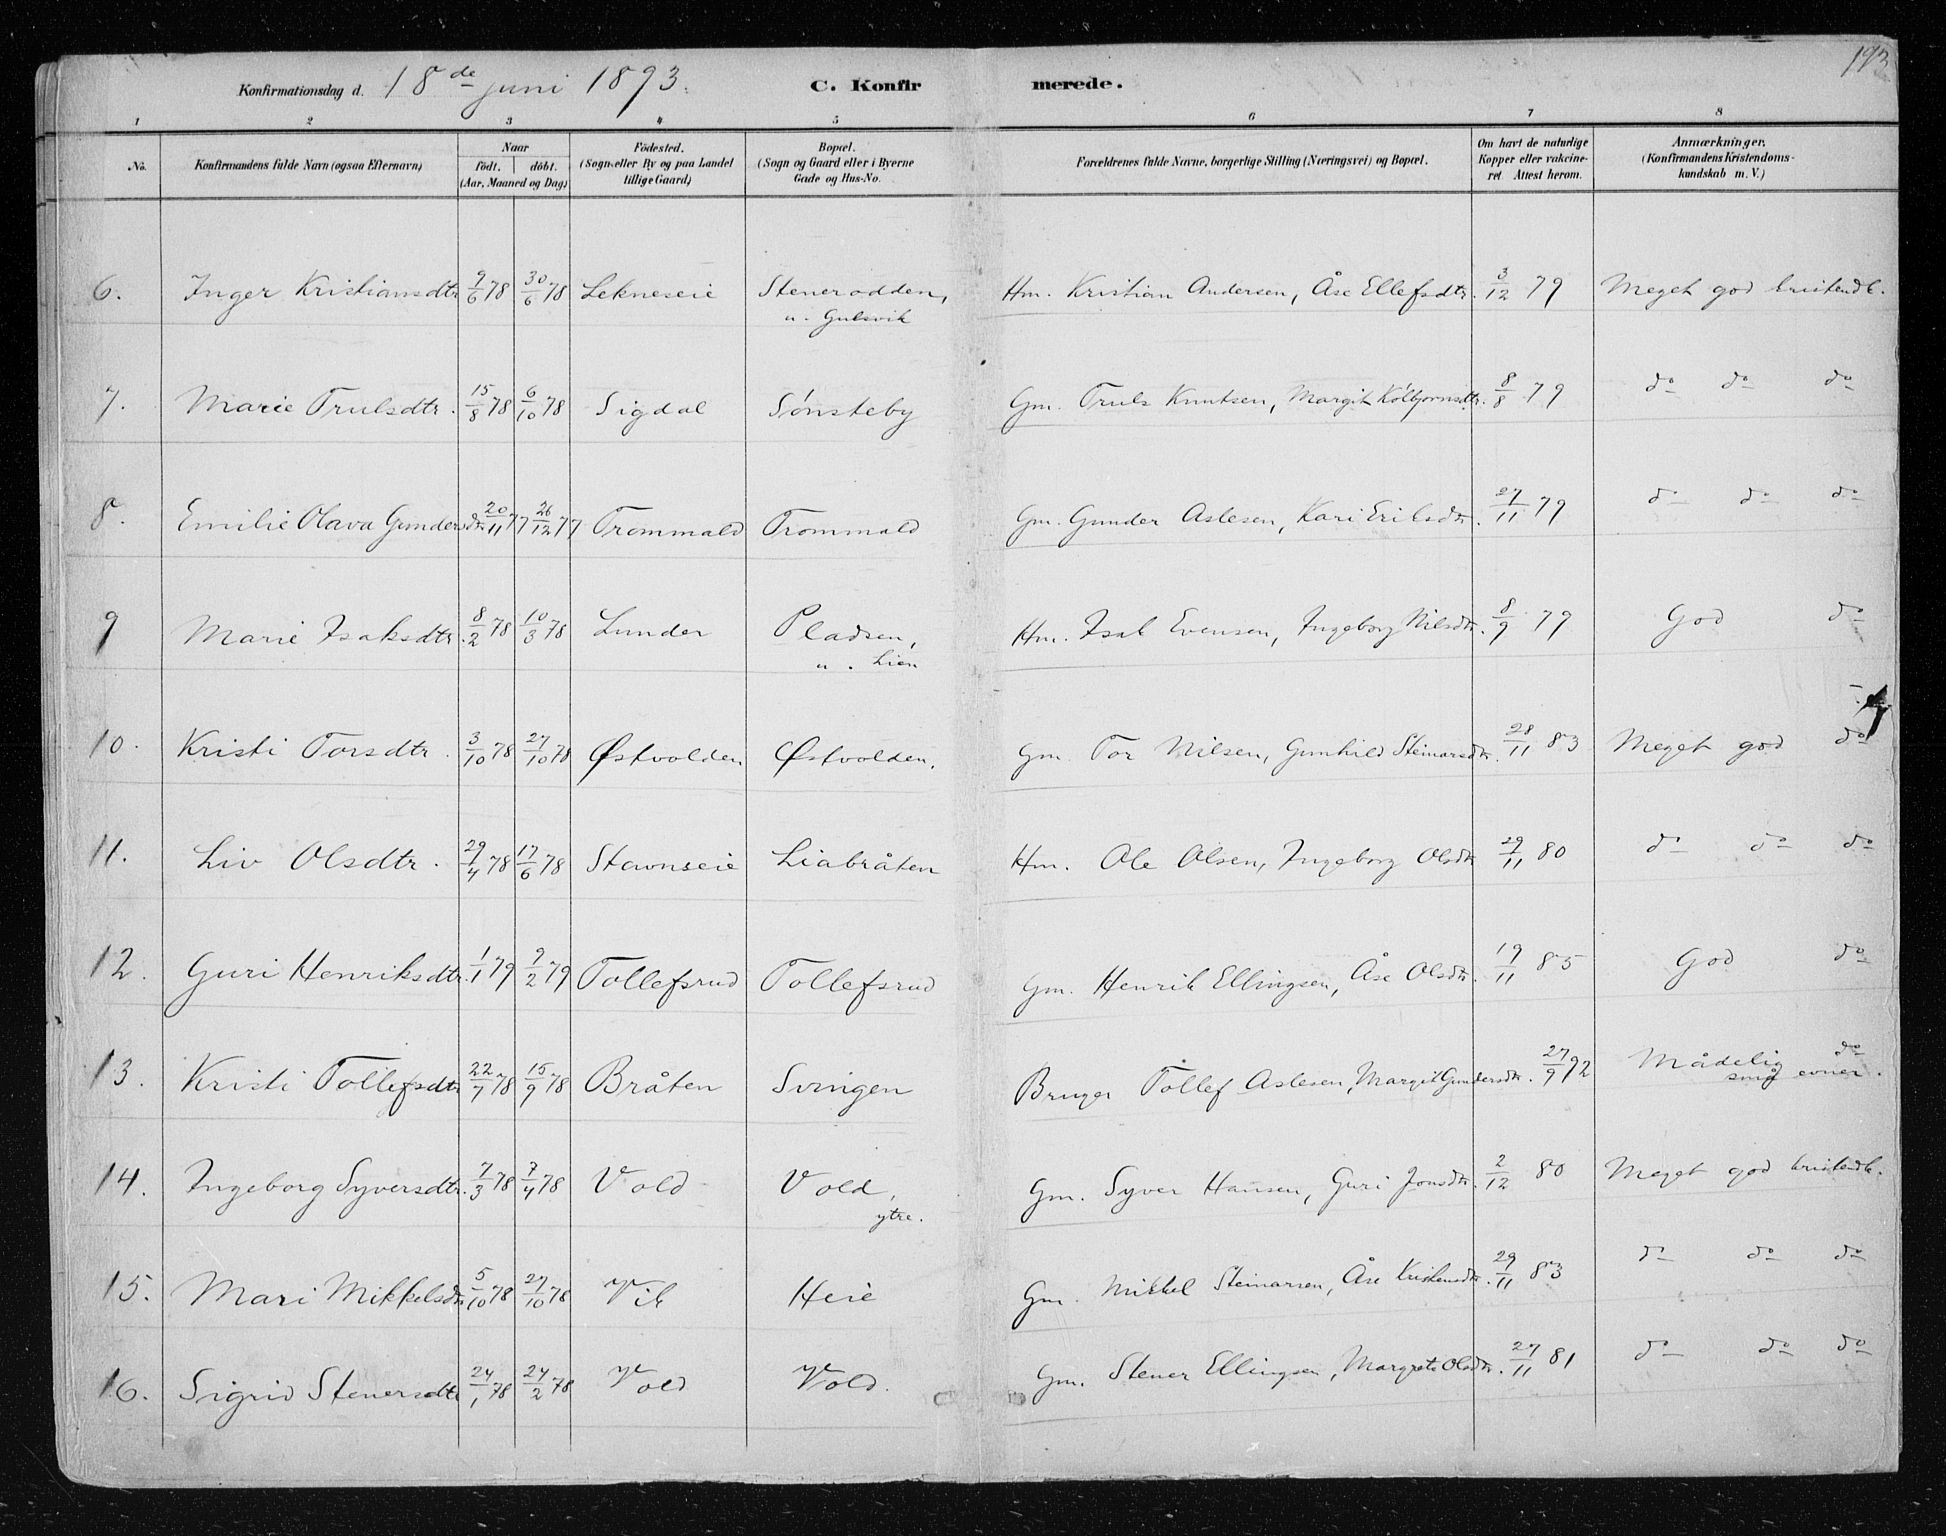 193
Konfirmationsdag d. 18de juni 1893. C. Konfirmerede.
1 2 3 4 5 6 7 8
No. Konfirmandens fulde Navn (ogsaa Efternavn) Naar födt. döbt. (Aar, Maaned og Dag) Födested. (Sogn eller By og paa Landet tillige Gaard) Bopæl. (Sogn og Gaard eller i Byerne Gade og Hus-No. Forældrenes fulde Navne, borgerlige Stilling (Næringsvei) og Bopæl. Om havt de naturlige Kopper eller vakcineret Attest herom. Anmærkninger. (Konfirmandens Kristendomskundskab m. V.)
6. Inger Kristiansdtr. 9/6 78 30/6 78 Lekneseie Stenerodden, u. Gulsvik Hm. Kristian Andersen, Åse Ellefsdtr. 3/12 79 Meget god kristendk.
7. Marie Trulsdtr. 15/8 78 6/10 78 Sigdal Sønsteby Gm. Truls Knutsen, Margit Kolbjørnsdtr. 8/8 79 do do do
8. Emilie Olava Gundersdtr 20/11 77 26/12 77 Trommald Trommald Gm. Gunder Aslesen, Kari Eriksdtr. 27/11 79 do do do
9 Marie Isaksdtr. 8/2 78 10/3 78 Lunder Pladsen, u. Lien Hm. Isak Evensen, Ingeborg Nilsdtr. 8/9 79 God do
10. Kristi Torsdtr. 3/10 78 27/10 78 Østvolden Østvolden. Gm. Tor Nilsen, Gunhild Steinarsdtr. 28/11 83 Meget god do
11. Liv Olsdtr. 29/4 78 17/6 78 Stavnseie Liabråten Hm. Ole Olsen, Ingeborg Olsdtr 29/11 80 do do do
12. Guri Henriksdtr. 1/1 79 9/2 79 Tollefsrud Tollefsrud Gm. Henrik Ellingsen, Åse Olsdtr. 19/11 85 God do
13. Kristi Tollefsdtr 22/7 78 15/9 78 Bråten Svingen Bruger Tollef Aslesen, Margit Gundersdtr. 27/9 92 Mådelig do små evner.
14. Ingeborg Syversdtr. 7/3 78 7/4 78 Vold Vold, ytre. Gm. Syver Hansen, Guri Jonsdtr. 2/12 80 Meget god kristendk.
15. Mari Mikkelsdtr 5/10 78 27/10 78 Vik Heie Gm. Mikkel Steinarsen, Åse Kristensdtr. 29/11 83 do do do
16. Sigrid Stenersdtr 24/1 78 24/2 78 Vold Vold. Gm. Stener Ellingsen, Margrete Olsdtr. 27/11 81 do do do